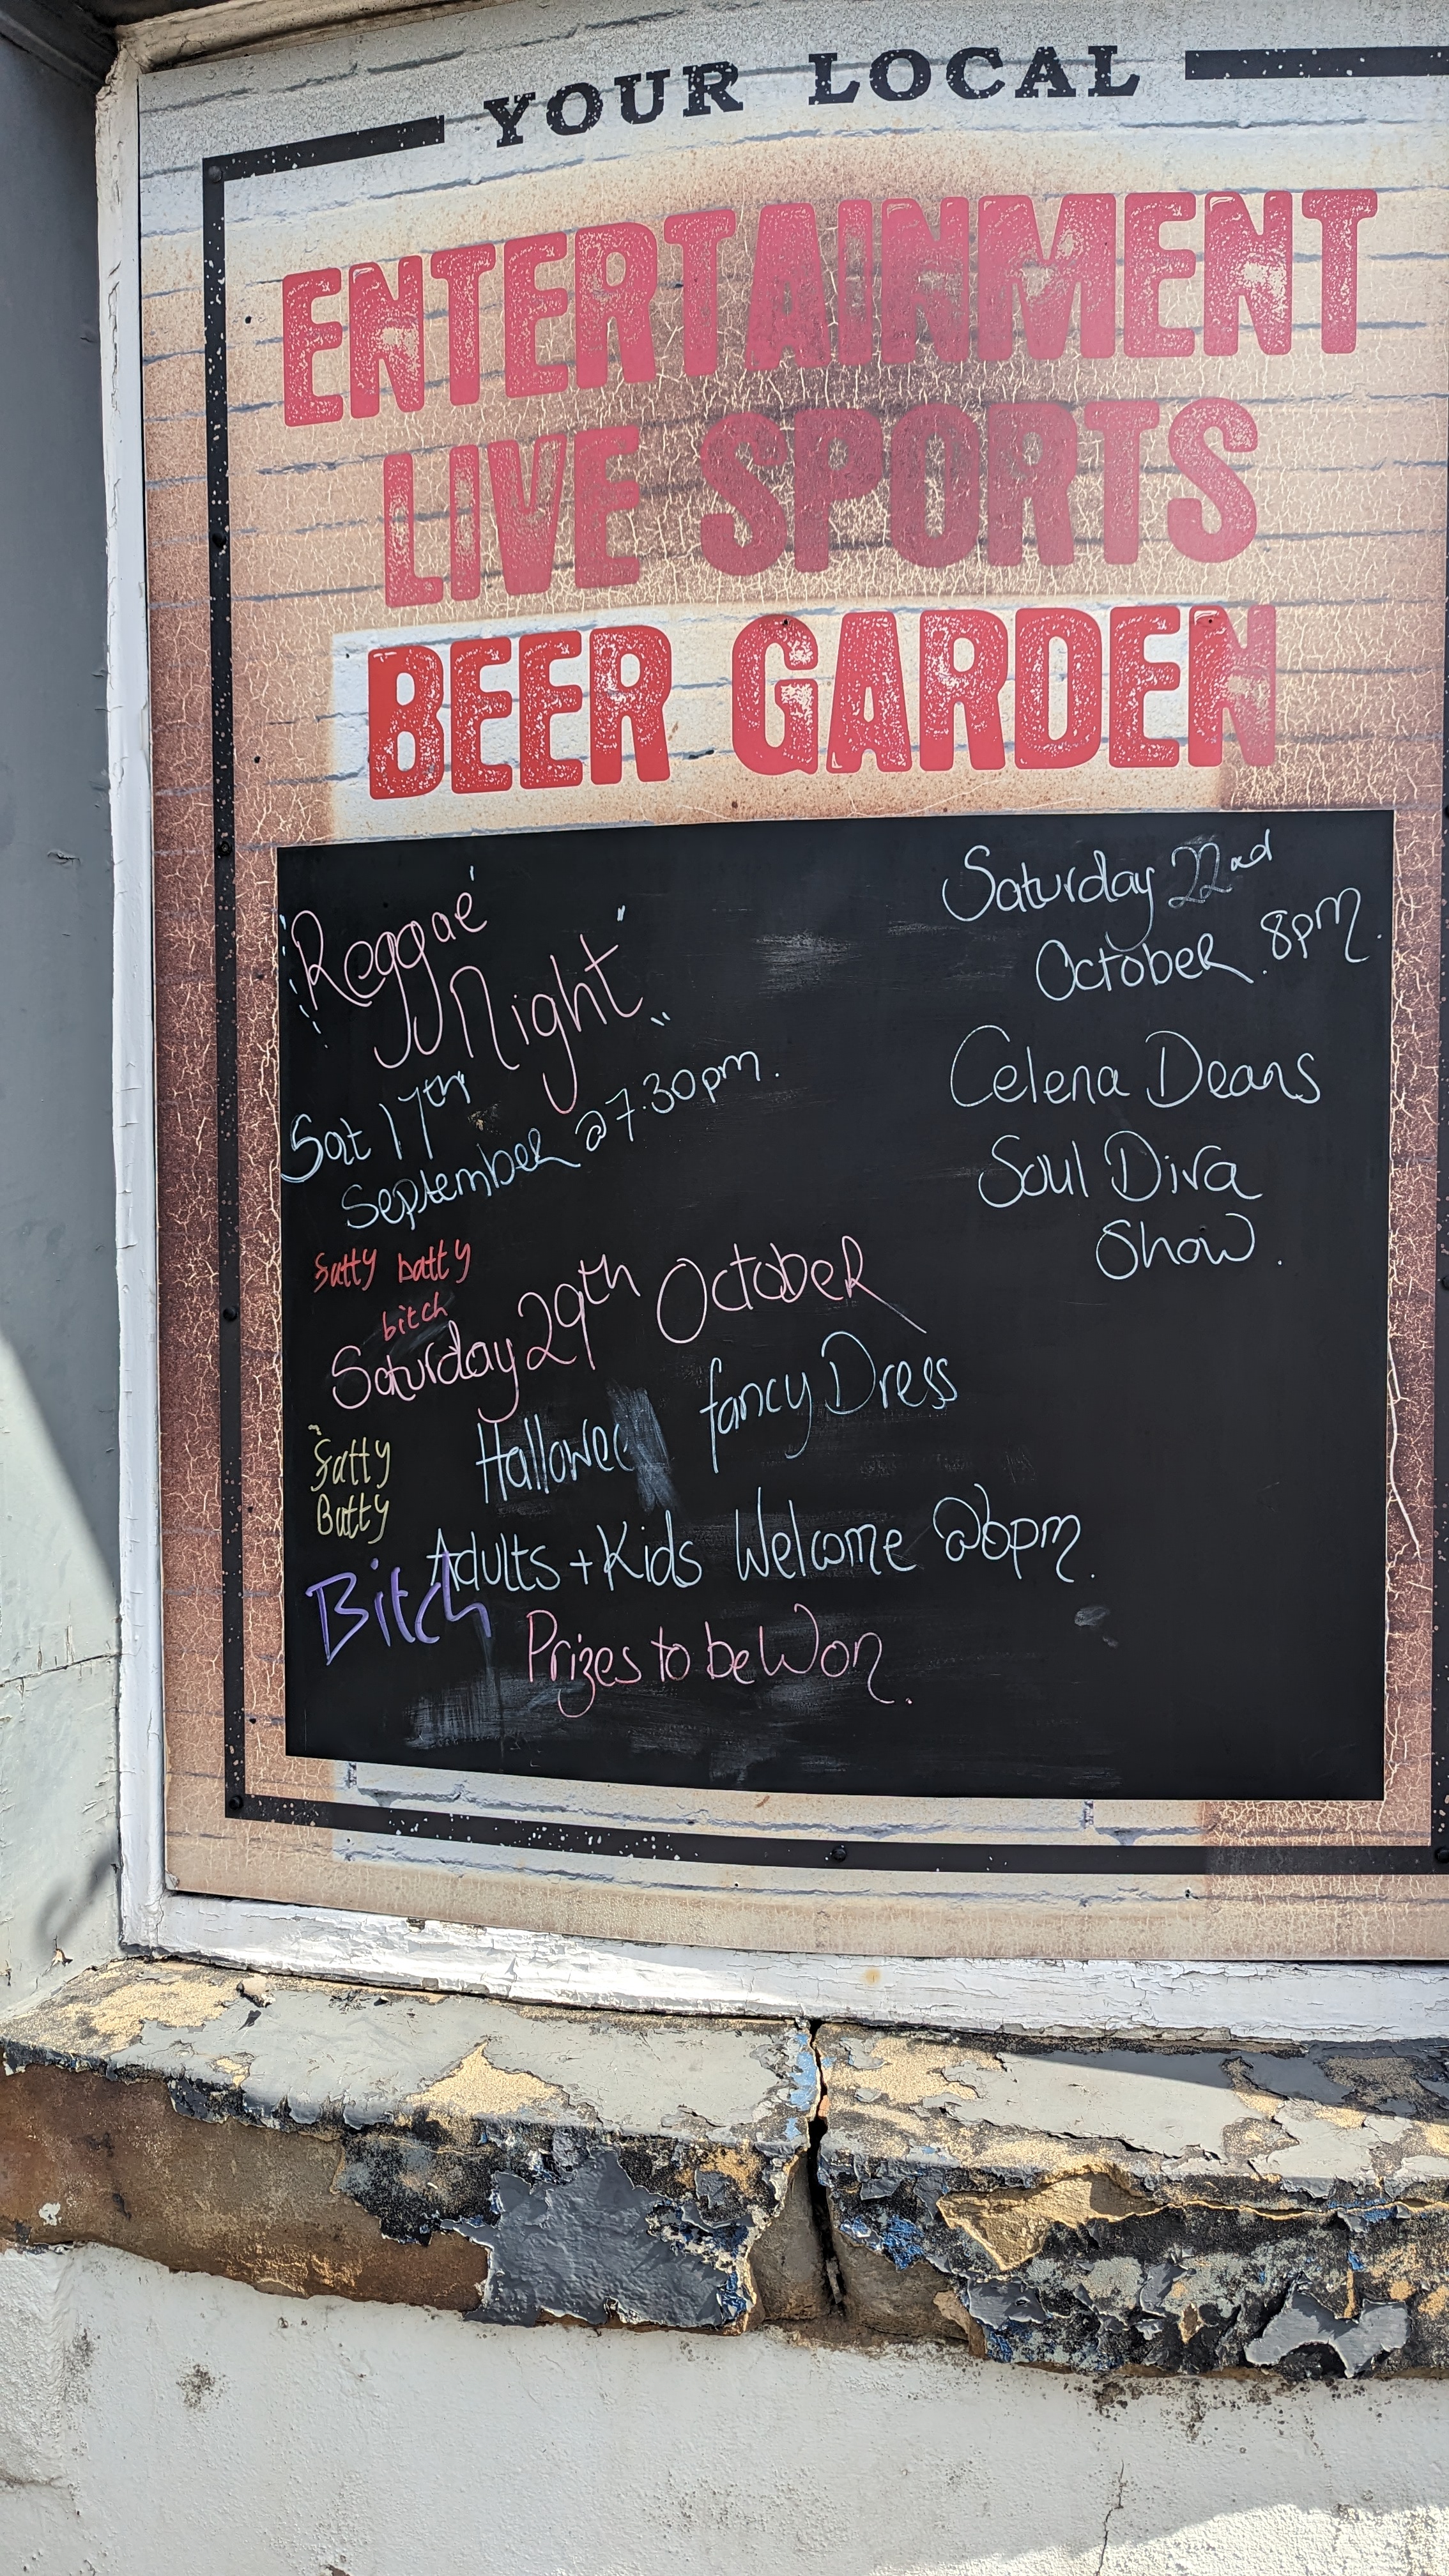 YOUR LOCAL
ENTERTAINMENT
LIVE SPORTS
BEER GARDEN
Reggae
Night
Sat 17th
September @7.30pm.
Saturday 22nd
October 8pm.
Celena Deans
Soul Diva
Show.
fatty batty
bitch
Saturday 29th October
Hallowee fancy Dress
fatty
Batty
Bitch
Adults + Kids Welcome @6pm.
Prizes to be Won.